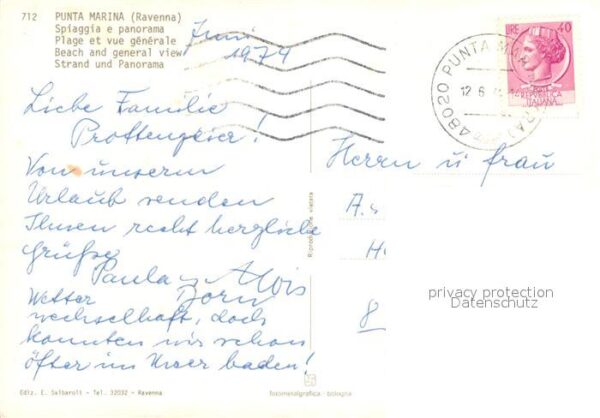 712 PUNTA MARINA (Ravenna)
Spiaggia e panorama
Plage et vue générale
Beach and general view
Strand und Panorama
Juni
1974
Liebe Familie
Prottengeier!
Von unserem
Urlaub senden
Ihnen recht herzliche
Grüße
Paula u Alois
Dorn
Wetter
wechselhaft, doch
konnten wir schon
öfter im Meer baden!
Ediz. E. Salbaroli - Tel. 32032 - Ravenna
Riproduzione vietata
fotometalgrafica - bologna
LIRE 40
REPUBBLICA
ITALIANA
48020 PUNTA MARINA (RA)
12 6
Herrn u Frau
A.
H
8
privacy protection
Datenschutz